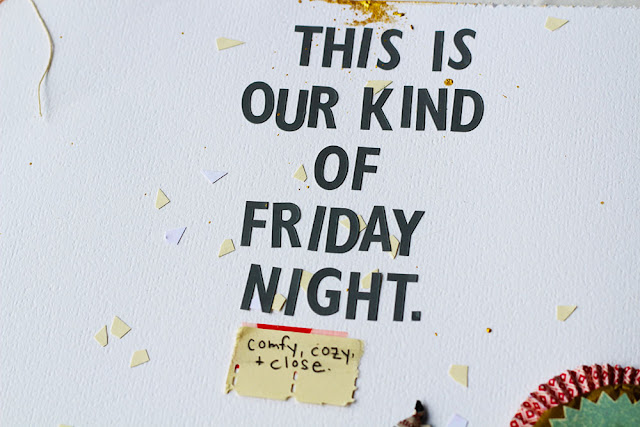 THIS IS
OUR KIND
OF
FRIDAY
NIGHT.
comfy, cozy,
+ close.